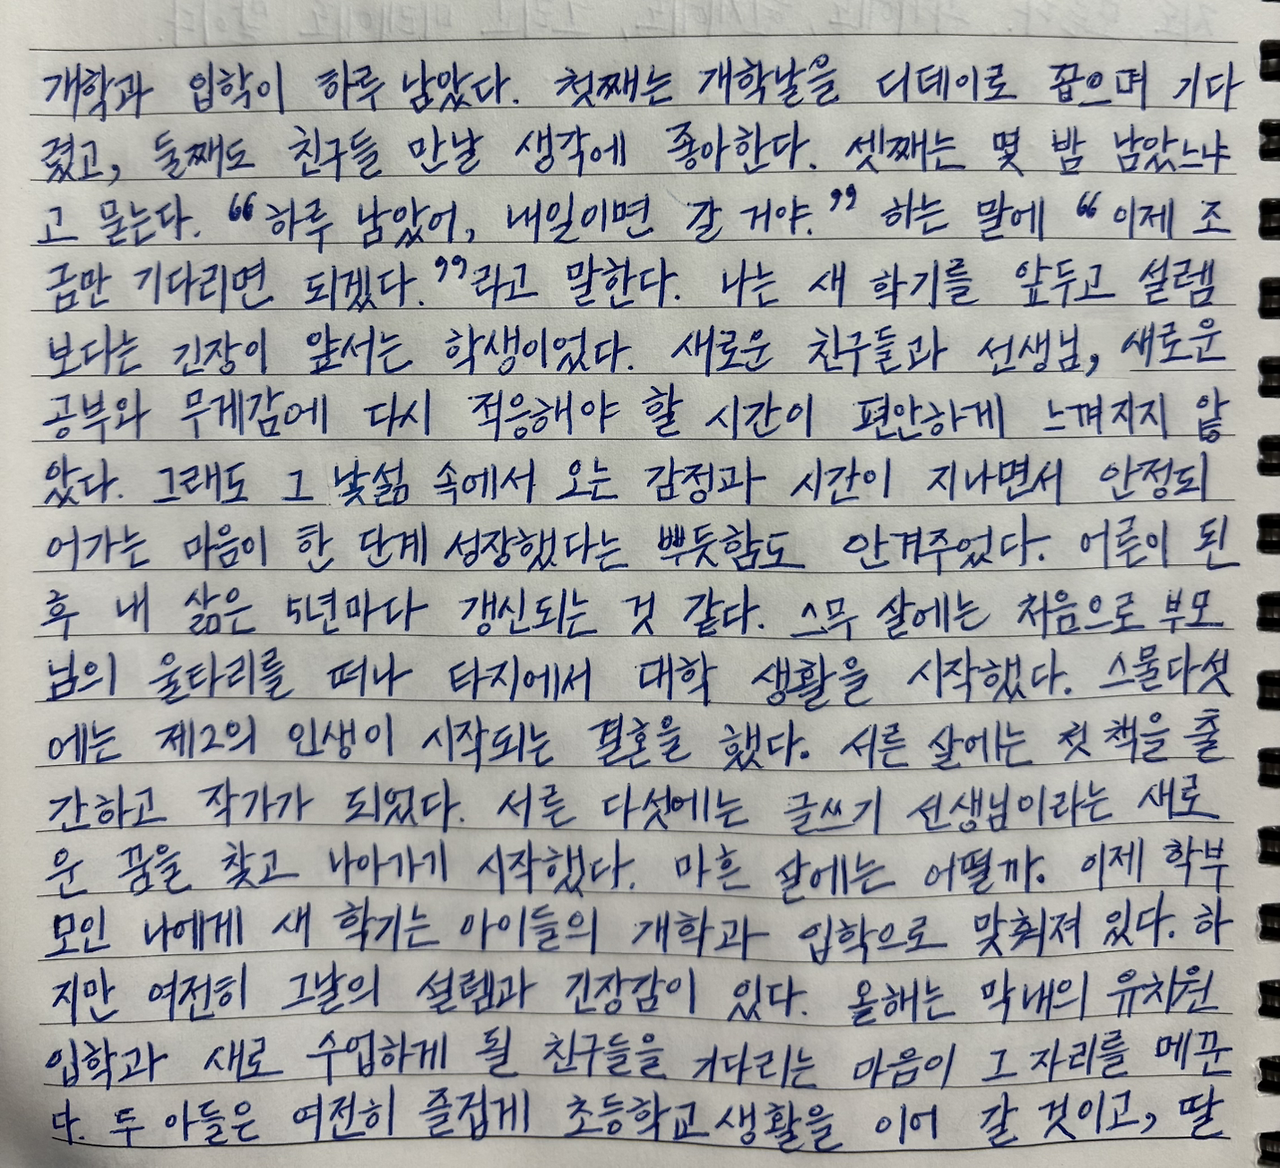 개학과 입학이 하루 남았다. 첫째는 개학날을 디데이로 꼽으며 기다
렸고, 둘째도 친구들 만날 생각에 좋아한다. 셋째는 몇 밤 남았느냐
고 묻는다. “하루 남았어, 내일이면 갈 거야.” 하는 말에 “이제 조
금만 기다리면 되겠다.”라고 말한다. 나는 새 학기를 앞두고 설렘
보다는 긴장이 앞서는 학생이었다. 새로운 친구들과 선생님, 새로운
공부와 무게감에 다시 적응해야 할 시간이 편안하게 느껴지지 않
았다. 그래도 그 낯섦 속에서 오는 감정과 시간이 지나면서 안정되
어가는 마음이 한 단계 성장했다는 뿌듯함도 안겨주었다. 어른이 된
후 내 삶은 5년마다 갱신되는 것 같다. 스무 살에는 처음으로 부모
님의 울타리를 떠나 타지에서 대학 생활을 시작했다. 스물다섯
에는 제2의 인생이 시작되는 결혼을 했다. 서른 살에는 첫 책을 출
간하고 작가가 되었다. 서른 다섯에는 글쓰기 선생님이라는 새로
운 꿈을 찾고 나아가기 시작했다. 마흔 살에는 어떨까. 이제 학부
모인 나에게 새 학기는 아이들의 개학과 입학으로 맞춰져 있다. 하
지만 여전히 그날의 설렘과 긴장감이 있다. 올해는 막내의 유치원
입학과 새로 수업하게 될 친구들을 기다리는 마음이 그 자리를 메꾼
다. 두 아들은 여전히 즐겁게 초등학교 생활을 이어 갈 것이고, 딸